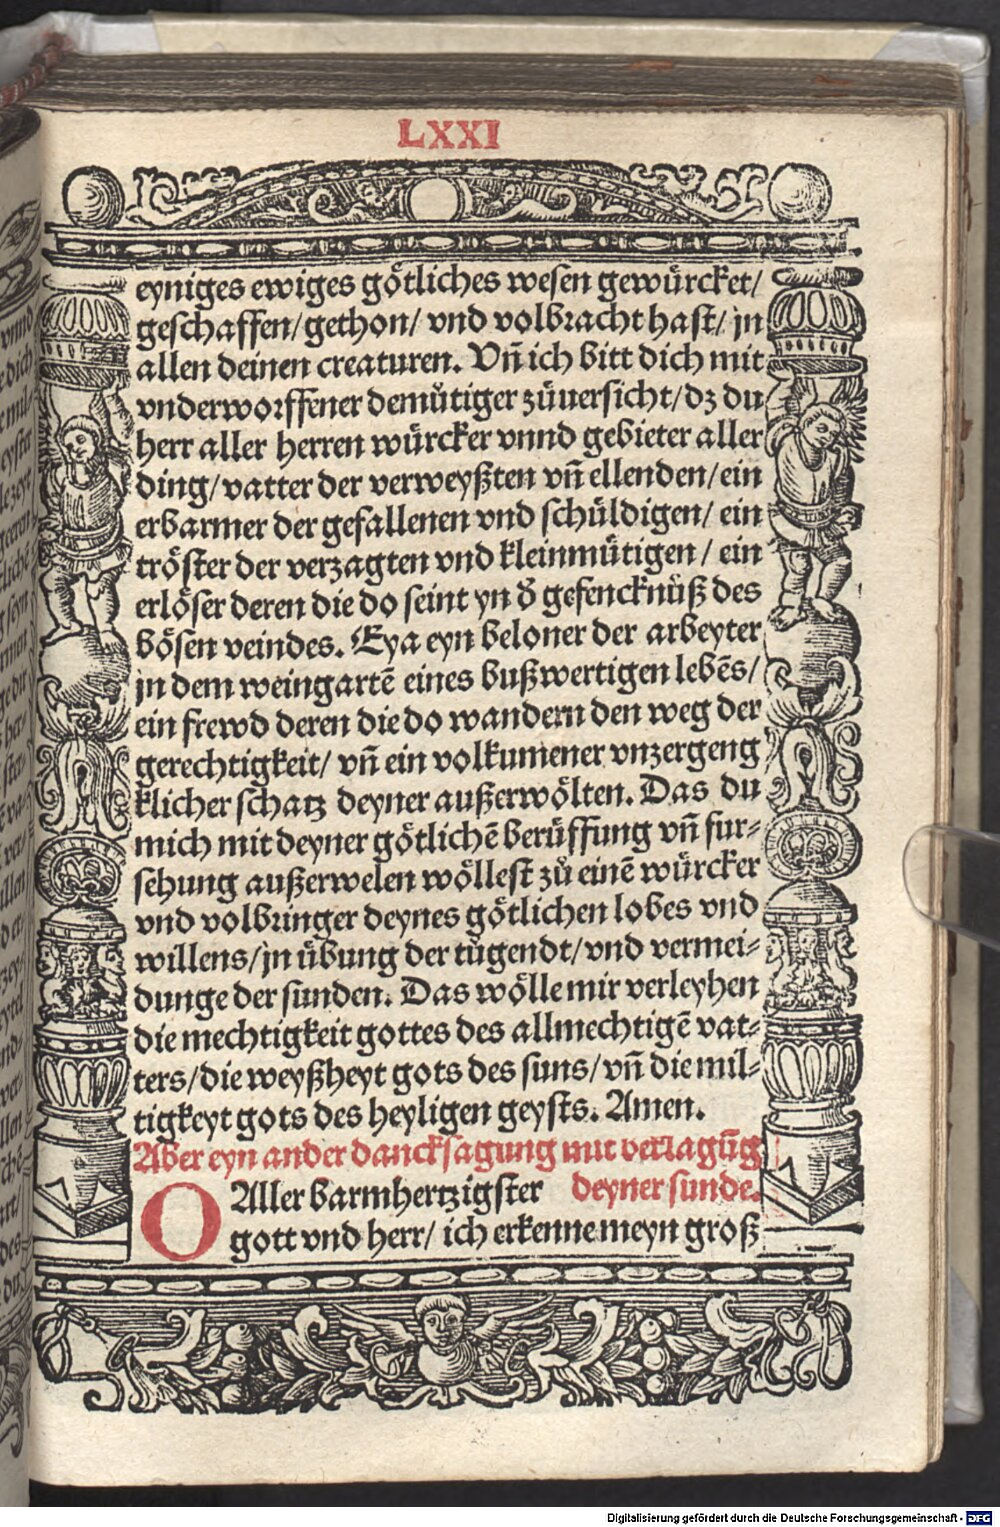 LXXI
eyniges ewiges götliches wesen gewürcket/
geschaffen/gethon/ vnd volbracht hast/ jn
allen deinen creaturen. Vñ ich bitt dich mit
vnderworffener demuͤtiger zuͤuersicht/dz du
herr aller herren würcker vnnd gebieter aller
ding/vatter der verweyßten vñ ellenden/ein
erbarmer der gefallenen vnd schüldigen/ ein
tröster der verzagten vnd kleinmütigen/ ein
erlöser deren die do seint yn d̕ gefencknüß des
bösen veindes. Eya eyn beloner der arbeyter
jn dem weingartē eines bußwertigen lebēs/
ein frewd deren die do wandern den weg der
gerechtigkeit/ vñ ein volkumener vnzergeng
klicher schatz deyner außerwölten. Das du
mich mit deyner götlichē berüffung vñ fur⸗
sehung außerwelen wöllest zuͤ einē würcker
vnd volbringer deynes götlichen lobes vnd
willens/jn übung der tugendt/vnd vermei⸗
dunge der sunden. Das wölle mir verleyhen
die mechtigkeit gottes des allmechtigē vat⸗
ters/die weyßheyt gots des suns/vñ die mil⸗
tigkeyt gots des heyligen geysts. Amen.
Aber eyn ander dancksagung mit verzagūg
deyner sunde.
O Aller barmhertzigster
gott vnd herr/ ich erkenne meyn groß
Digitalisierung gefördert durch die Deutsche Forschungsgemeinschaft - DFG